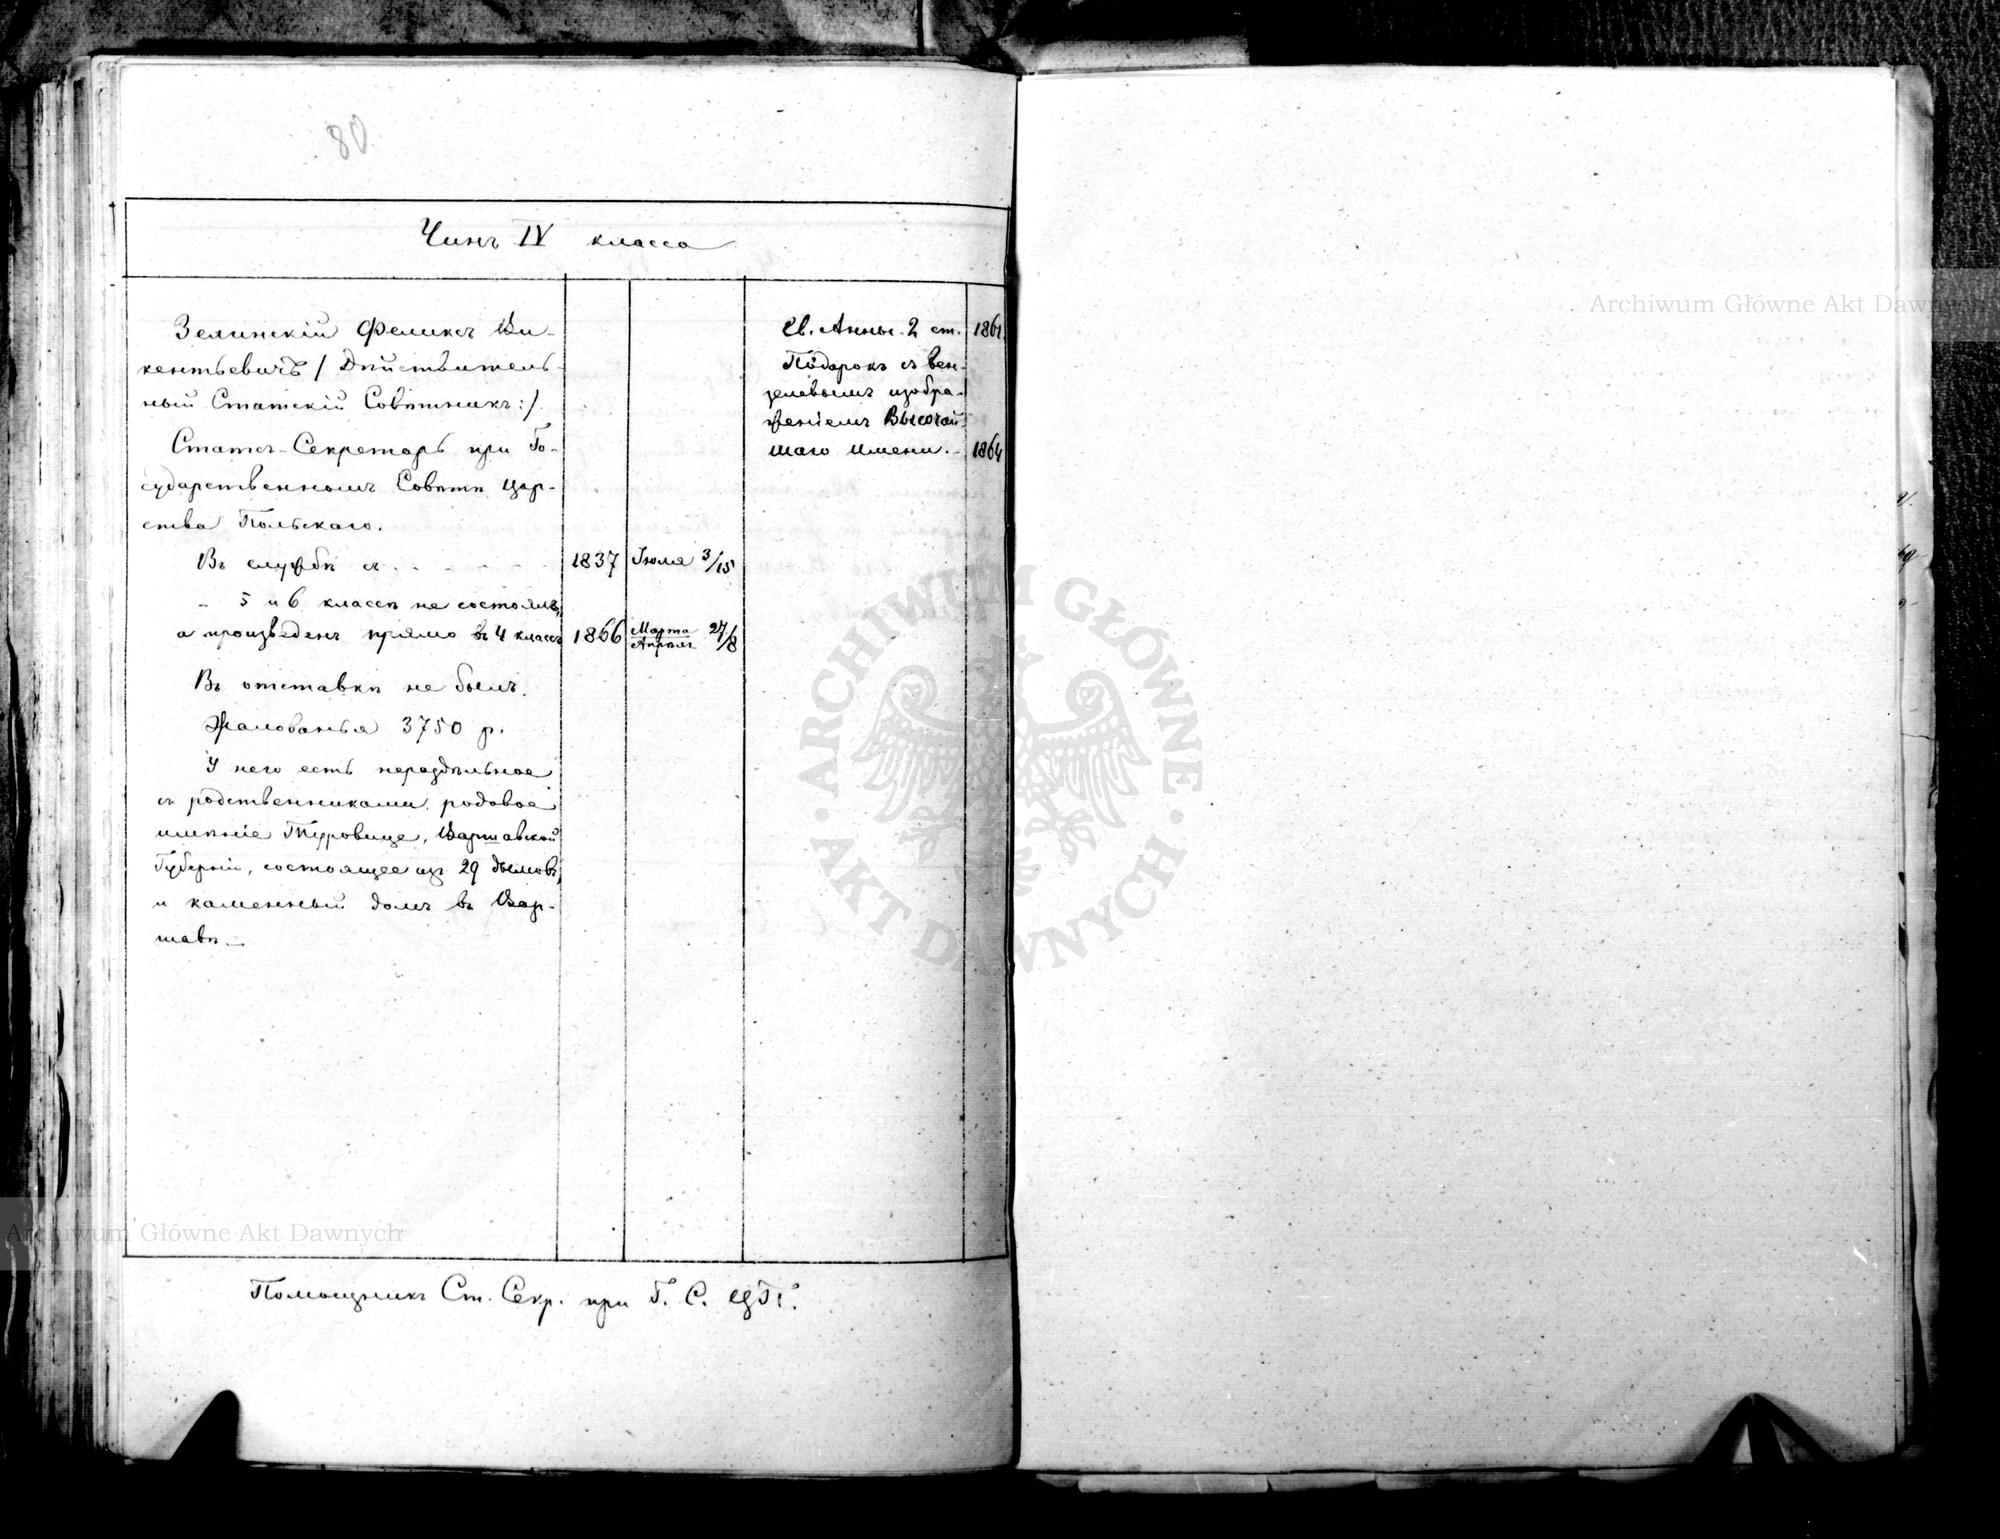 80
Чинъ IV класса
Зелинскій Феликсъ Ви-
кентьевичъ /Дѣйствитель-
ный Статскій Совѣтникъ:/.
Статсъ-Секретарь при Го-
сударственномъ Совѣтѣ Цар-
ства Польскаго.
Въ службѣ съ . . . . . 1837 Іюля 3/15
— 5 и 6 классѣ не состоялъ,
а произведенъ прямо въ 4 классъ 1866 Марта/Апрѣля 27/8
Въ отставкѣ не былъ.
Жалованья 3750 р.
У него есть нераздѣльное
съ родственниками родовое
имѣніе Туровице, Варшавской
Губерніи, состоящее изъ 29 дымовъ,
и каменный домъ въ Вар-
шавѣ.—
Св. Анны 2 ст. 1861.
Подарокъ съ вен-
зелевымъ изобра-
женіемъ Высочай-
шаго Имени.— 1864
Помощникъ Ст. Секр. при Г. С. ЦП.
Archiwum Główne Akt Dawnych
Archiwum Główne Akt Dawnych
ARCHIWUM GŁÓWNE · AKT DAWNYCH ·